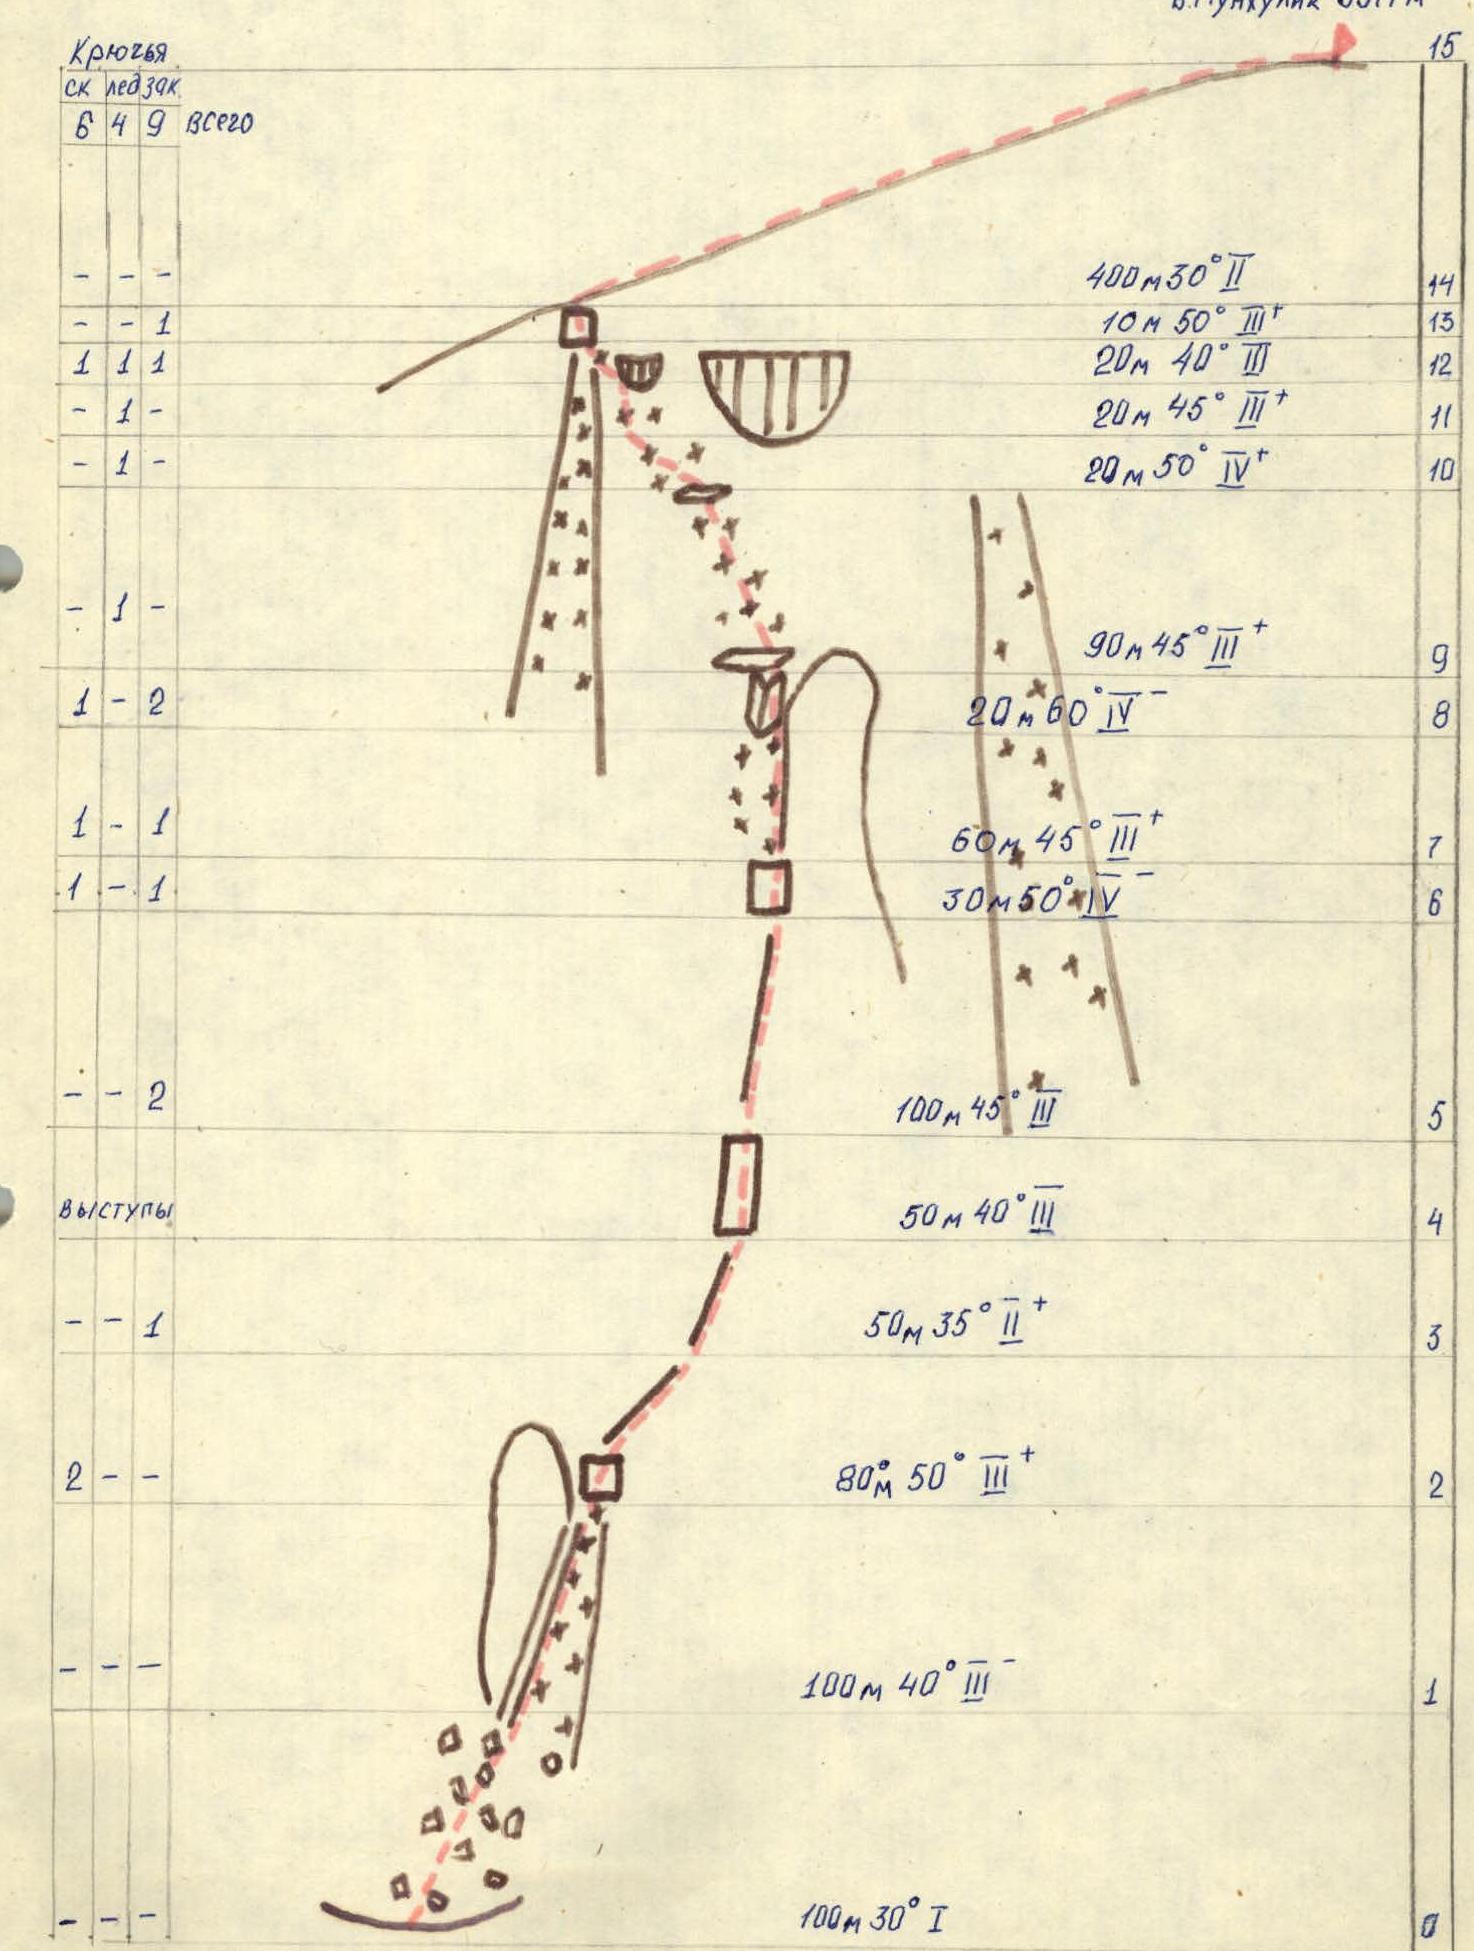 Крючья 15
ск лед зак.
6 4 9 всего
- - - 400м 30° II 14
- - 1 10м 50° III+ 13
1 1 1 20м 40° III 12
- 1 - 20м 45° III+ 11
- 1 - 20м 50° IV+ 10
- 1 - 90м 45° III+ 9
1 - 2 20м 60° IV- 8
1 - 1 60м 45° III+ 7
1 - 1 30м 50° IV- 6
- - 2 100м 45° III 5
выступы 50м 40° III 4
- - 1 50м 35° II+ 3
2 - - 80м 50° III+ 2
- - - 100м 40° III- 1
- - - 100м 30° I 0